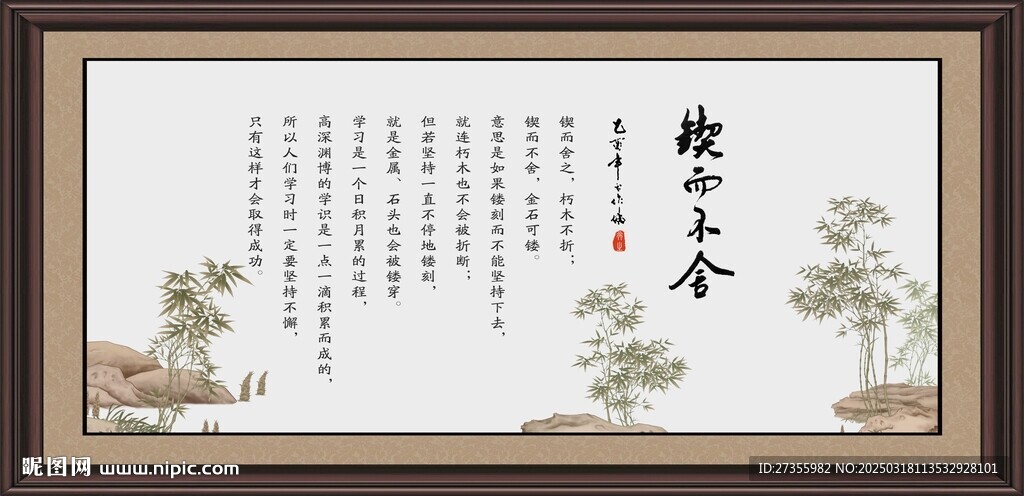 锲而不舍
锲而舍之，朽木不折；
锲而不舍，金石可镂。
意思是如果镂刻而不能坚持下去，
就连朽木也不会被折断；
但若坚持一直不停地镂刻，
就是金属、石头也会被镂穿。
学习是一个日积月累的过程，
高深渊博的学识是一点一滴积累而成的，
所以人们学习时一定要坚持不懈，
只有这样才会取得成功。
昵图网 www.nipic.com
ID:27355982 NO:20250318113532928101